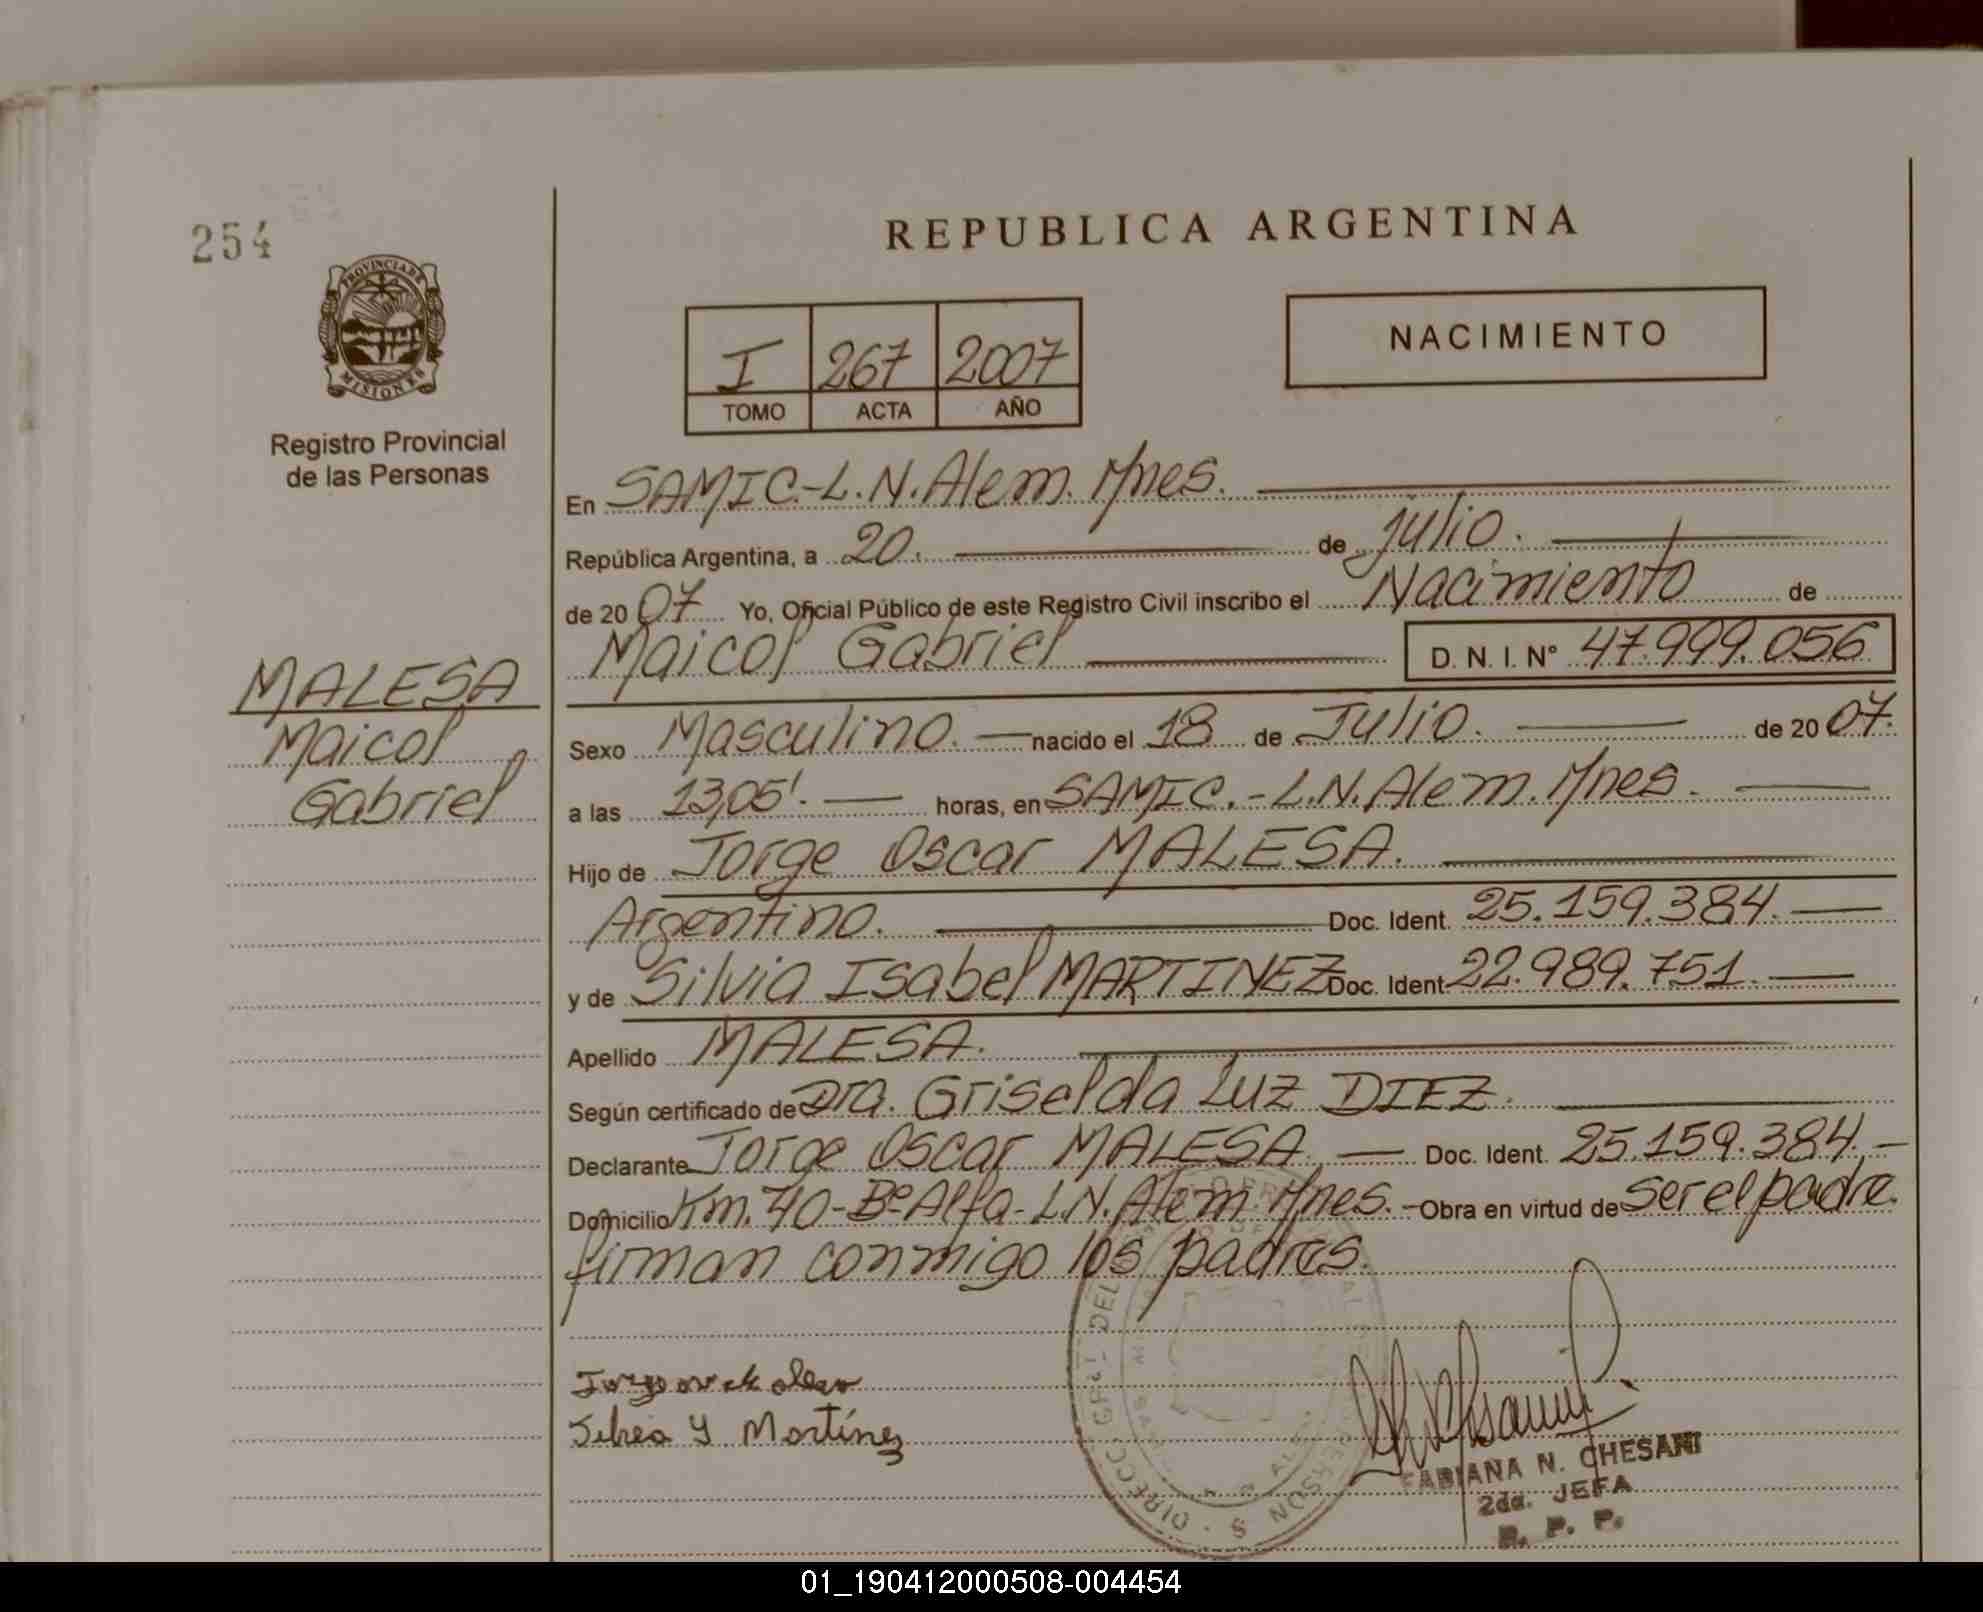 254
PROVINCIA DE
MISIONES
Registro Provincial
de las Personas
MALESA
Maicol
Gabriel
REPUBLICA ARGENTINA
I 267 2007
TOMO ACTA AÑO
NACIMIENTO
En SAMIC.-L.N.Alem. Mnes.
República Argentina, a 20. de julio.
de 2007 Yo, Oficial Público de este Registro Civil inscribo el Nacimiento de
Maicol Gabriel D. N. I. N° 47.999.056
Sexo Masculino. nacido el 18 de Julio. de 2007.
a las 13,05'. horas, en SAMIC.-L.N.Alem. Mnes.
Hijo de Jorge Oscar MALESA.
Argentino. Doc. Ident. 25.159.384.
y de Silvia Isabel MARTINEZ Doc. Ident. 22.989.751.
Apellido MALESA.
Según certificado de Dra. Griselda Luz DIEZ.
Declarante Jorge Oscar MALESA. Doc. Ident. 25.159.384.
Domicilio Km. 70-B° Alfa-L.N.Alem Mnes. Obra en virtud de ser el padre.
firman conmigo los padres.
Martínez
FABIANA N. CHESANI
2da. JEFA
R. P. P.
01_190412000508-004454